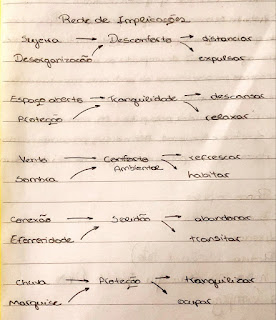 Rede de Implicações
Sujeira → Desconforto → distanciar
Desorganização → expulsar
Espaço aberto → Tranquilidade → descansar
Proteção → relaxar
Vento → Conforto Ambiental → refrescar
Sombra → habitar
Conexão → Solidão → abandonar
Efemeridade → transitar
Chuva → Proteção → tranquilizar
Marquise → ocupar